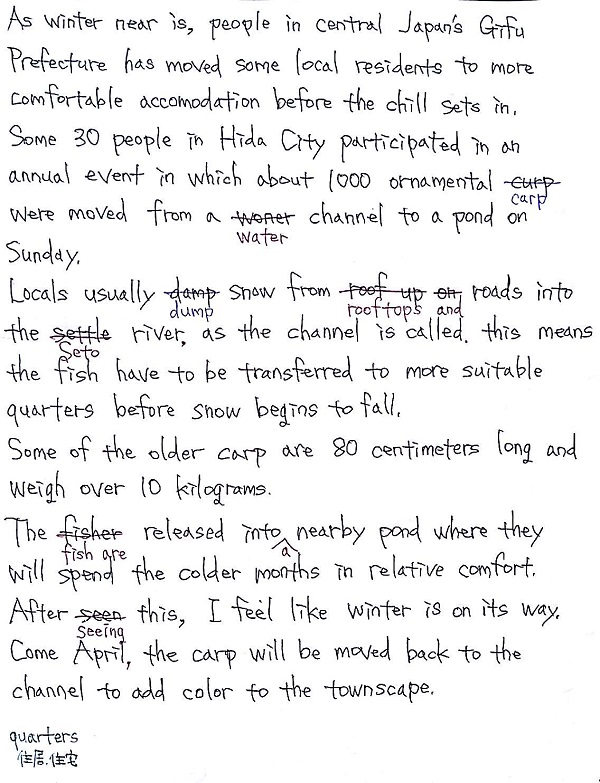 As winter near is, people in central Japan's Gifu
Prefecture has moved some local residents to more
comfortable accomodation before the chill sets in.
Some 30 people in Hida City participated in an
annual event in which about 1000 ornamental curp
carp
were moved from a woner channel to a pond on
water
Sunday.
Locals usually damp snow from roof up on roads into
dump rooftops and
the settle river, as the channel is called. this means
Seto
the fish have to be transferred to more suitable
quarters before snow begins to fall.
Some of the older carp are 80 centimeters long and
weigh over 10 kilograms.
The fisher released into nearby pond where they
fish are a
will spend the colder months in relative comfort.
After seen this, I feel like winter is on its way.
seeing
Come April, the carp will be moved back to the
channel to add color to the townscape.
quarters
住居.住宅